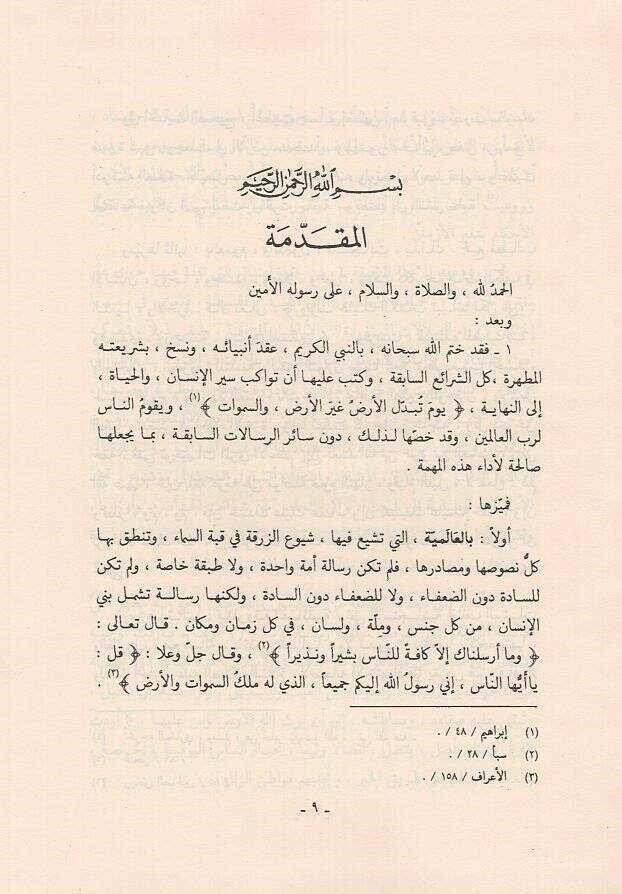 بسم الله الرحمن الرحيم
المقدّمة
الحمدُ لله ، والصلاة ، والسلام ، على رسوله الأمين
وبعد :
١ ـ فقد ختم الله سبحانه ، بالنبي الكريم ، عقدَ أنبيائه ، ونسخ ، بشريعته
المطهرة ، كل الشرائع السابقة ، وكتب عليها أن تواكب سير الإنسان ، والحياة ،
إلى النهاية ، ﴿ يومَ تُبدّل الأرضُ غيرَ الأرض ، والسموات ﴾(١) ، ويقومُ الناس
لرب العالمين ، وقد خصّها لذلك ، دون سائر الرسالات السابقة ، بما يجعلها
صالحة لأداء هذه المهمة .
فميّزها :
أولاً : بالعَالَميّة ، التي تشيع فيها ، شيوع الزرقة في قبة السماء ، وتنطق بها
كلُّ نصوصها ومصادرها ، فلم تكن رسالة أمة واحدة ، ولا طبقة خاصة ، ولم تكن
للسادة دون الضعفاء ، ولا للضعفاء دون السادة ، ولكنها رسالة تشمل بني
الإنسان ، من كل جنس ، وملّة ، ولسان ، في كل زمان ومكان . قال تعالى :
﴿ وما أرسلناك إلاّ كافةً للنّاس بشيراً ونذيراً ﴾(٢) ، وقال جلّ وعلا : ﴿ قل :
ياأيُّها النّاس ، إني رسولُ الله إليكم جميعاً ، الذي له ملكُ السموات والأرض ﴾(٣) .
(١) إبراهيم / ٤٨ / .
(٢) سبأ / ٢٨ / .
(٣) الأعراف / ١٥٨ / .
ـ ٩ ـ